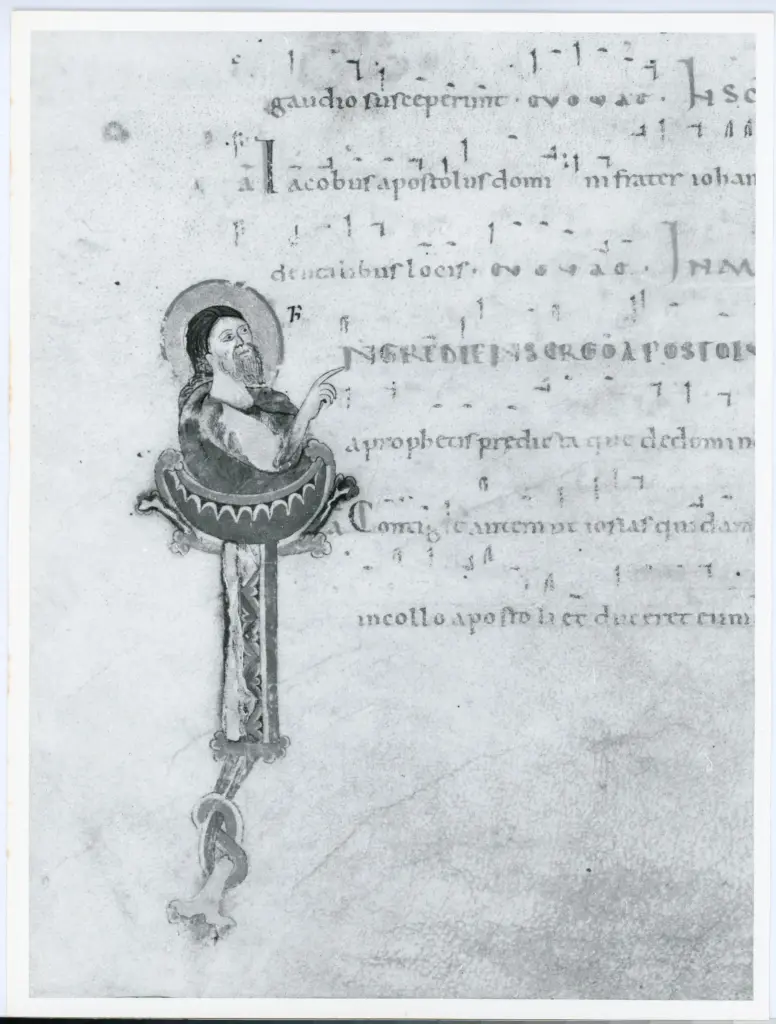 gaudio susceperunt · e v o v a e · IN SC
a Iacobus apostolus domini frater iohan
dentalibus locis · e v o v a e · IN M
R
INGREDIENS ERGO APOSTOLV
a prophetis predicta que de domin
a Contigit autem ut iosias quidam
in collo apostoli et duceret eum